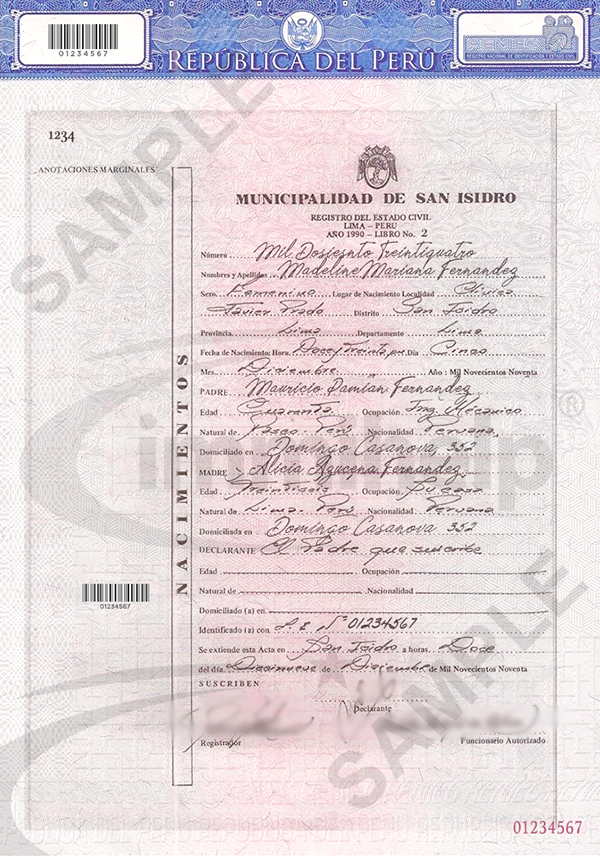 01234567
REPÚBLICA DEL PERÚ
REGISTRO NACIONAL DE IDENTIFICACIÓN Y ESTADO CIVIL
1234
ANOTACIONES MARGINALES
NACIMIENTOS
MUNICIPALIDAD DE SAN ISIDRO
REGISTRO DEL ESTADO CIVIL
LIMA – PERU
AÑO 1990 – LIBRO No. 2
Número Mil Dosiesnto Treintiquatro
Nombres y Apellidos Madeline Mariana Fernandez
Sexo Femenino Lugar de Nacimiento Localidad Clinica
Javier Prado Distrito San Isidro
Provincia Lima Departamento Lima
Fecha de Nacimiento: Hora Doce y Treinta pm Día Cinco
Mes Diciembre Año : Mil Novecientos Noventa
PADRE Mauricio Damian Fernandez
Edad Cuarenta Ocupación Ing. Mecanico
Natural de Pasco - Perú Nacionalidad Peruana
Domiciliado en Domingo Casanova 352
MADRE Alicia Azucena Fernandez
Edad Treintiseis Ocupación Su casa
Natural de Lima - Perú Nacionalidad Peruana
Domiciliada en Domingo Casanova 352
DECLARANTE El Padre que suscribe
Edad Ocupación
Natural de Nacionalidad
Domiciliado (a) en
Identificado (a) con L.E. N° 01234567
Se extiende esta Acta en San Isidro a horas Doce
del día Diecinueve de Diciembre de Mil Novecientos Noventa
SUSCRIBEN
Declarante
Registrador Funcionario Autorizado
01234567
01234567
SAMPLE
SAMPLE
SAMPLE